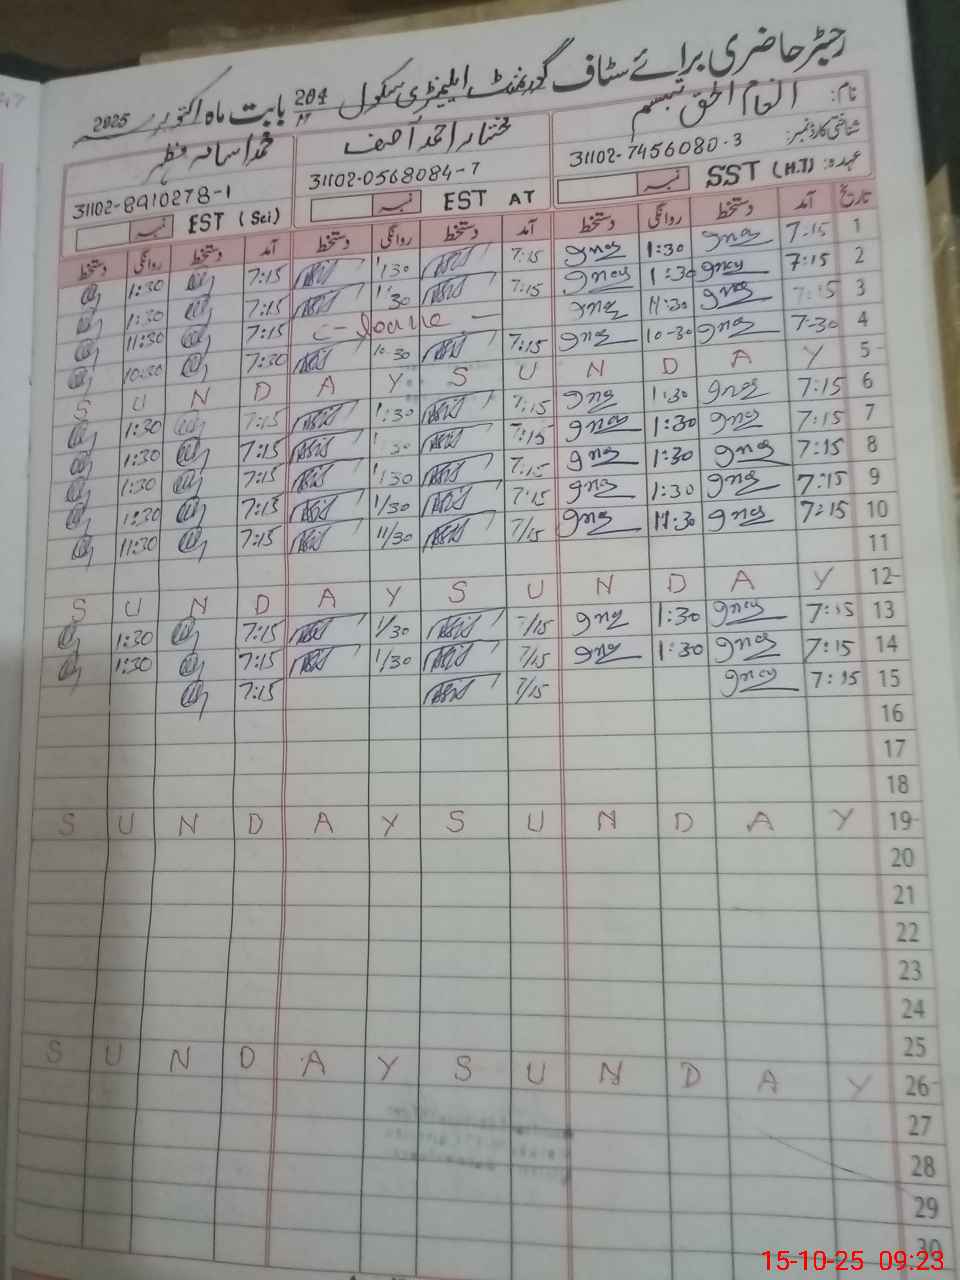 رجسٹر حاضری برائے سٹاف گورنمنٹ ایلیمنٹری سکول 204/M بابت ماہ اکتوبر 2025
نام: انعام الحق تبسم مختار احمد آصف محمد اسامہ مظہر
شناختی کارڈ نمبر: 31102-7456080-3 31102-0568084-7 31102-8910278-1
عہدہ: SST (H.T) نمبر EST AT نمبر EST (Sci) نمبر
تاریخ آمد دستخط روانگی دستخط آمد دستخط روانگی دستخط آمد دستخط روانگی دستخط
1 7:15 1:30 7:15 1:30 7:15 1:30
2 7:15 1:30 7:15 1:30 7:15 1:30
3 7:15 11:30 C-leave 7:15 11:30
4 7-30 10-30 7:15 10:30 7:30 10:30
5 S U N D A Y S U N D A Y
6 7:15 1:30 7:15 1:30 7:15 1:30
7 7:15 1:30 7:15 1:30 7:15 1:30
8 7:15 1:30 7:15 1:30 7:15 1:30
9 7:15 1:30 7:15 1/30 7:15 1:30
10 7:15 11:30 7/15 11/30 7:15 11:30
11
12 S U N D A Y S U N D A Y
13 7:15 1:30 7/15 1/30 7:15 1:30
14 7:15 1:30 7/15 1/30 7:15 1:30
15 7:15 7/15 7:15
16
17
18
19 S U N D A Y S U N D A Y
20
21
22
23
24
25
26 S U N D A Y S U N D A Y
27
28
29
30
15-10-25 09:23